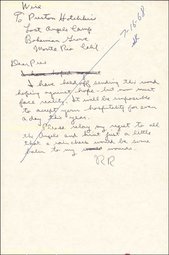 Wire
To Preston Hotchkis
Lost Angels Camp
Bohemian Grove
Monte Rio Calif
7-16-68
Dear Pres
I have hoped against
I have held off sending this word
hoping against hope - but now must
face reality. It will be impossible
to accept your hospitality for even
a day this year.
Please relay my regret to all
the Angels and hint just a little
that a raincheck would be some
balm to my wounds.
RR